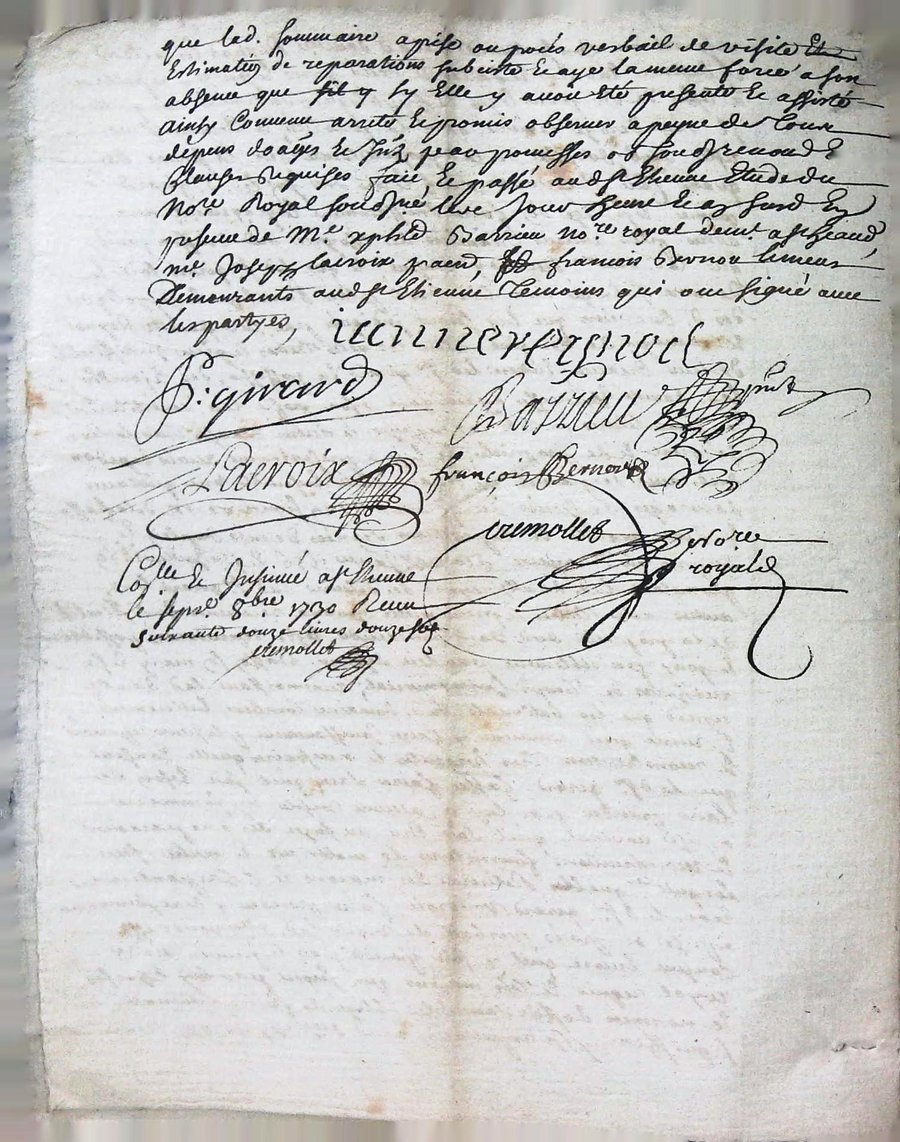 que lad. Sommaire aprise ou procés verbail de visite Et
Estimaton de reparations subsiste et aye la meme force a son
absence que sil y sy Elle y avoit eté presente et assisté
ainsy Convenu arreté et promis observer a peyne de tous
dépens
Clauses Requises fait et passé aud. St Etienne Etude du
No.re Royal sousigné lesd. jour
presence de Me Barrieu no.re royal dem.t a St
me Joseph Lacroix francois Bernou limeur
Demeurants aud St Etienne Temoins qui ont signé avec
les partyes,
ianne vergnod
P: girard
Barrieu
Lacroix
françois Bernou
tremollet
royal
Coll.e et Insinué a St Etienne
le sept.e 8bre 1730 Receu
soixante douze livres douze sols
tremollet